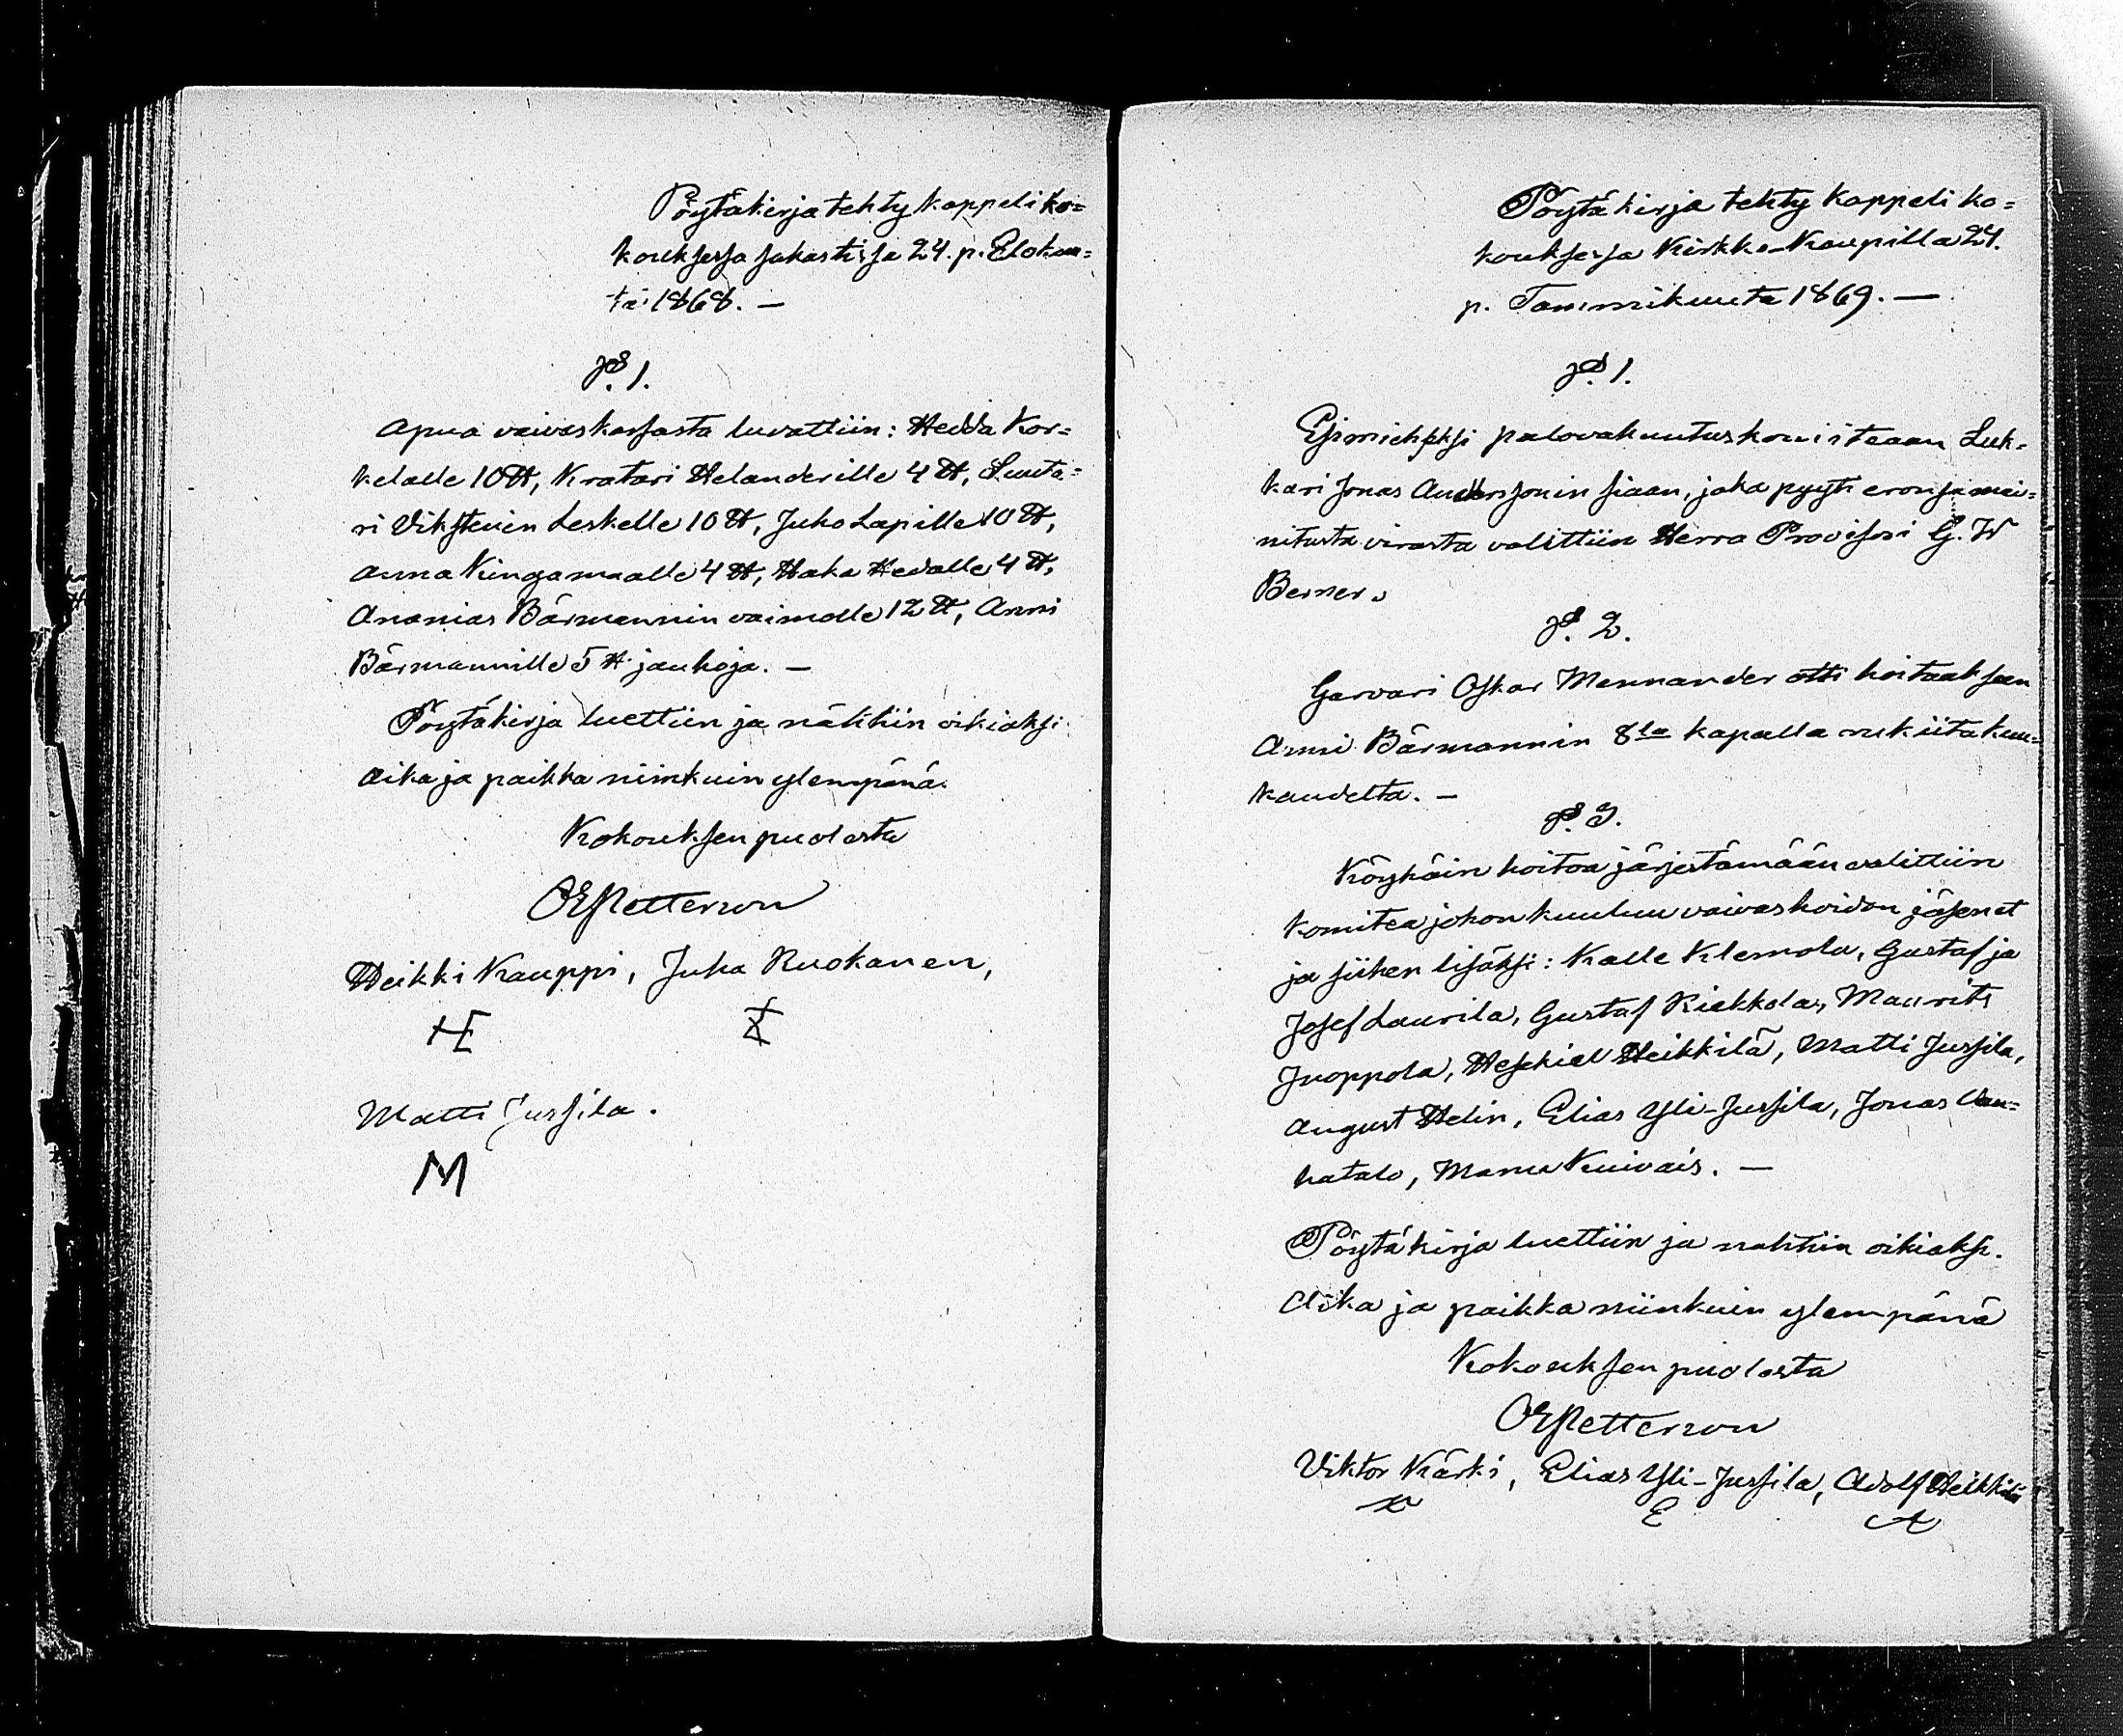 Pöytäkirja tehty kappeli ko=
kouksessa sakastissa 24. p. Elokuu=
ta 1868. —
§. 1.
Apua vaivaskassasta luvattiin: Hedda Kor=
kelalle 10 ℔, Kratari Helanderille 4 ℔, Suuta=
ri Vikstenin Leskelle 10 ℔, Juho Lapille 10 ℔,
Anna Kungasmaalle 4 ℔, Haka Hedalle 4 ℔,
Ananias Bärmannin vaimolle 12 ℔, Anni
Bärmannille 5 ℔ jauhoja. —
Pöytäkirja luettiin ja nähtiin oikiaksi
Aika ja paikka niinkuin ylempänä.
Kokouksen puolesta
OEPetterson
Heikki Kauppi, Juha Ruokanen,
Matti Jussila.
M
Pöytäkirja tehty kappeli ko=
kouksessa Kirkko-Kaupilla 24.
p. Tammikuuta 1869. —
§. 1.
Esimieheksi palovakuutuskomiteaan Luk=
kari Jonas Anderssonin siaan, joka pyysi eronsa mai=
nitusta virasta valittiin Herra Provisori G. W
Berner.
§. 2.
Garvari Oskar Mennander otti hoitaaksean
Anni Bärmannin 8la kapalla rukiita kuu=
kaudelta. —
§. 3.
Köyhäin hoitoa järjestämään valittiin
komitea johon kuuluu vaivashoidon jäsenet
ja siihen lisäksi: Kalle Klemola, Gustaf ja
Josef Laurila, Gustaf Riekkola, Maurits
Juoppola, Heskiel Heikkilä, Matti Jussila,
August Helin, Elias Yli-Jussila, Jonas Van=
hatalo, Manu Kuivais. —
Pöytäkirja luettiin ja nähtiin oikiaksi.
Aika ja paikka niinkuin ylempänä
Kokouksen puolesta
OEPetterson
Viktor Kärki, Elias Yli-Jussila, Adolf Heikkilä
E A